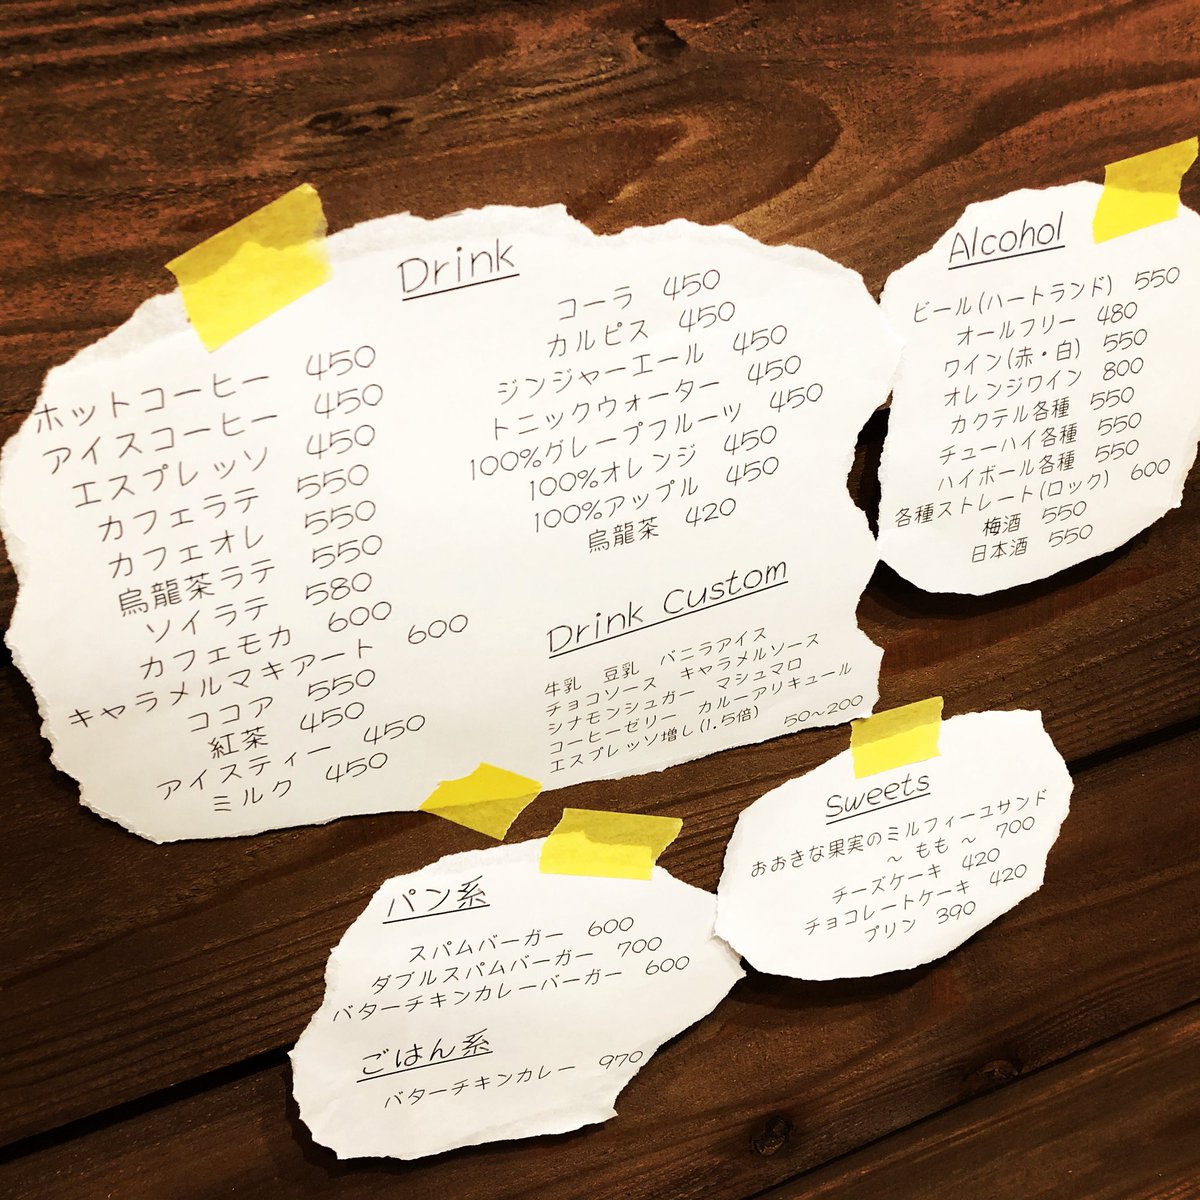 Drink
ホットコーヒー 450
アイスコーヒー 450
エスプレッソ 450
カフェラテ 550
カフェオレ 550
烏龍茶ラテ 550
ソイラテ 580
カフェモカ 600
キャラメルマキアート 600
ココア 550
紅茶 450
アイスティー 450
ミルク 450
コーラ 450
カルピス 450
ジンジャーエール 450
トニックウォーター 450
100%グレープフルーツ 450
100%オレンジ 450
100%アップル 450
烏龍茶 420
Drink Custom
牛乳 豆乳 バニラアイス
チョコソース キャラメルソース
シナモンシュガー マシュマロ
コーヒーゼリー カルーアリキュール
エスプレッソ増し(1.5倍) 50〜200
Alcohol
ビール(ハートランド) 550
オールフリー 480
ワイン(赤・白) 550
オレンジワイン 800
カクテル各種 550
チューハイ各種 550
ハイボール各種 550
各種ストレート(ロック) 600
梅酒 550
日本酒 550
パン系
スパムバーガー 600
ダブルスパムバーガー 700
バターチキンカレーバーガー 600
ごはん系
バターチキンカレー 970
Sweets
おおきな果実のミルフィーユサンド
〜 もも 〜 700
チーズケーキ 420
チョコレートケーキ 420
プリン 390